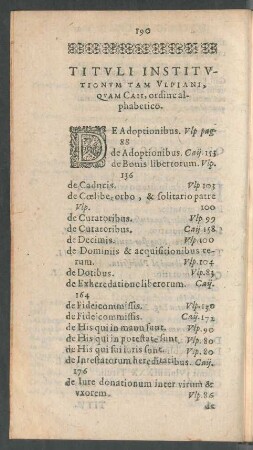 190
TITVLI INSTITV-
TIONVM TAM VLPIANI,
QVAM CAII, ordine al-
phabetico.
DE Adoptionibus. Vlp pag.
88
de Adoptionibus. Caij. 155
de Bonis libertorum. Vlp.
136
de Caducis. Vlp 105
de Cœlibe, orbo, & solitario patre
Vlp. 100
de Curatoribus. Vlp 99
de Curatoribus. Caij 158
de Decimis. Vlp 100
de Dominiis & acquisitionibus re-
rum. Vlp. 104
de Dotibus. Vlp. 83
de Exheredatione liberorum. Caij.
164
de Fideicommissis. Vlp. 130
de Fideicommissis. Caij. 172
de His qui in manu sunt. Vlp. 90
de His qui in potestate sunt. Vlp. 80
de His qui sui iuris sunt. Vlp. 80
de Intestatorum hereditatibus. Caij.
176
de Iure donationum inter virum &
vxorem. Vlp. 86
de